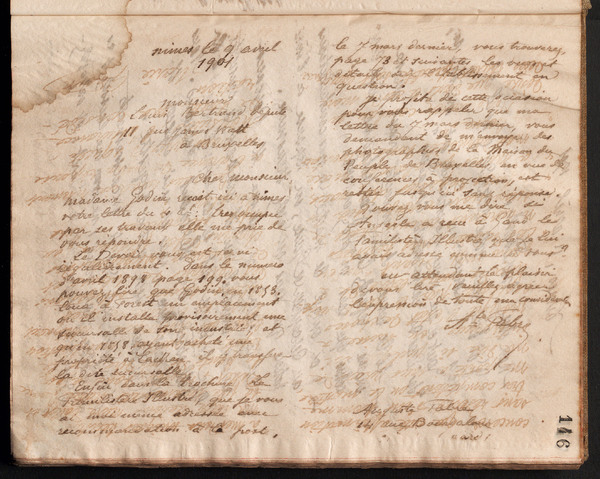 nimes le 9 avril
1901
monsieur
Louis Bertrand député
11 rue James Watt
à Bruxelles
cher monsieur
madame Godin reçoit ici à nimes
votre lettre du 4 ct. Très occupée
par ses travaux elle me prie de
vous répondre.
Le Devoir vous est servi
régulièrement. Dans le numéro
d'avril 1898 page 199, vous
pouvez lire que Godin, en 1853,
loua à Forest un emplacement
où il installa provisoirement une
succursale de son industrie, et
qu'en 1858 ayant acheté une
propriété à Laeken il y transféra
la dite succursale.
Enfin dans la brochure, Le
Familistère Illustré, que je vous
ai moi même adressée avec
recommandation à la poste,
le 7 mars dernier, vous trouverez,
page 73 et suivantes les
détails sur l'établissement en
question.
Je profite de cette occasion
pour vous rappeler que ma
lettre du 7 mars dernier, vous
demandant de m'envoyer des
photographies de la Maison du
Peuple de Bruxelles, en vue de
conférences à projection, est
restée jusqu'ici sans réponse.
Pouvez vous me dire si
Anseele a reçu à Gand le
Familistère Illustré que je lui
avais adressé comme à vous?
en attendant le plaisir
de vous lire, veuillez agréer
l'expression de toute ma considération
Ate Fabre
Auguste Fabre
14 rue Bourdaloue
146